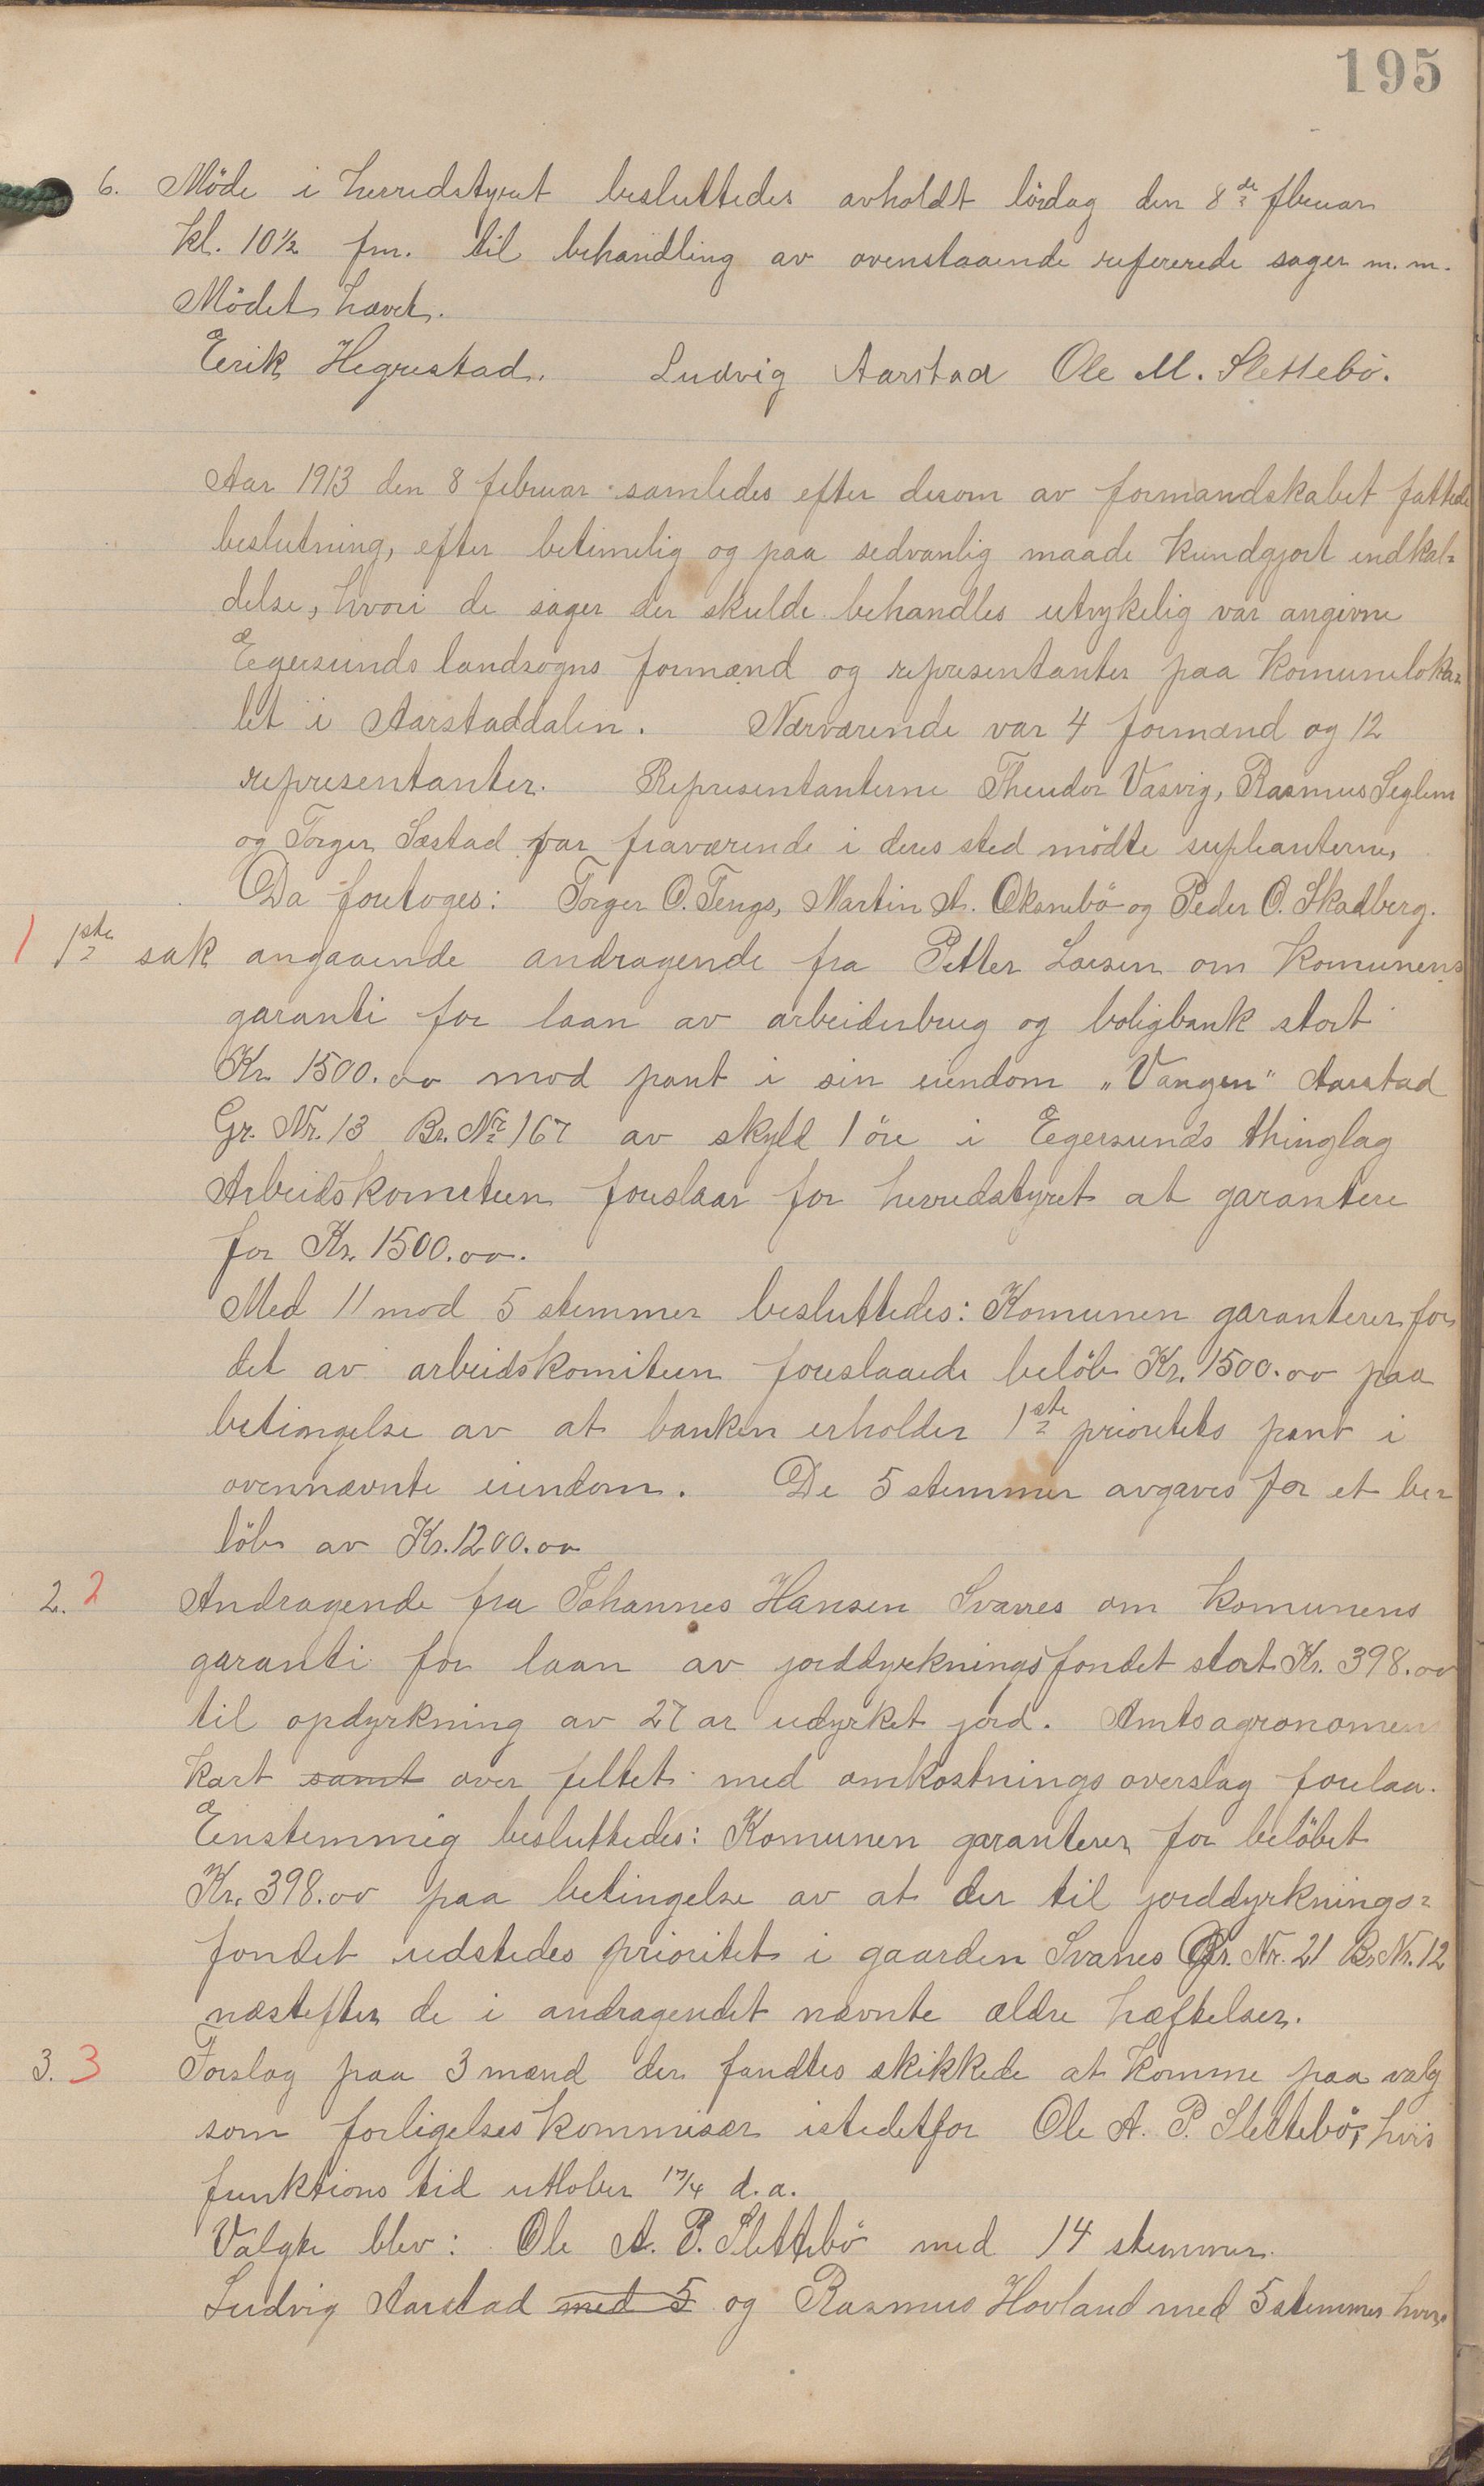 195
6. Möde i herredstyret besluttedes avholdt lördag den 8de februar
kl. 10½ fm. til behandling av ovenstaaende refererede sager m.m.
Mödet hævet.
Eerik Hegrestad. Ludvig Aarstad Ole M. Slettebö.
Aar 1913 den 8 februar samledes efter derom av formandskabet fattede
beslutning, efter betimelig og paa sedvanlig maade kundgjort indkal-
delse, hvori de sager der skulde behandles utrykelig var angivne
Egersunds landsogns formænd og representanter paa komuneloka-
let i Aarstaddalen. Nærværende var 4 formænd og 12
representanter. Representanterne Theodor Vasvig, Rasmus Seglem
og Torger Sæstad var fraværende i deres sted mödte supleanterne,
Da foretoges: Torger O. Tengs, Martin A. Eksnebö og Peder O. Skadberg.
1 1ste sak angaaende andragende fra Petter Larsen om komunens
garanti for laan av arbeiderbrug og boligbank stort
Kr. 1500.00 mod pant i sin eiendom „Vangen" Aarstad
Gr. Nr. 13 Br. Nr. 167 av skyld 1 öre i Egersunds thinglag
Arbeidskomiteen foreslaar for herredstyret at garantere
for Kr. 1500.00.
Med 11 mod 5 stemmer besluttedes: Komunen garanterer for
det av arbeidskomiteen foreslaaede belöb Kr. 1500.00 paa
betingelse av at banken erholder 1ste prioritets pant i
ovennævnte eiendom. De 5 stemmer avgaves for et be-
löb av Kr. 1200.00
2. 2 Andragende fra Johannes Hansen Svanes om komunens
garanti for laan av jorddyrkningsfondet stort Kr. 398.00
til opdyrkning av 27 ar udyrket jord. Amtsagronomens
kart samt over feltet med omkostnings overslag forelaa.
Eenstemmig besluttedes: Komunen garanterer for belöbet
Kr. 398.00 paa betingelse av at der til jorddyrknings-
fondet udstedes prioritet i gaarden Svanes Gr. Nr. 21 Br. Nr. 12
næstefter de i andragendet nævnte ældre hæftelser.
3. 3 Forslag paa 3 mænd der fandtes skikkede at komme paa valg
som forligelseskommisær istedetfor Ole A. P. Slettebö, hvis
funktions tid utlöber 17/4 d.a.
Valgte blev: Ole A. P. Slettebö med 14 stemmer.
Ludvig Aarstad med 5 og Rasmus Hovland med 5 stemmer hver.